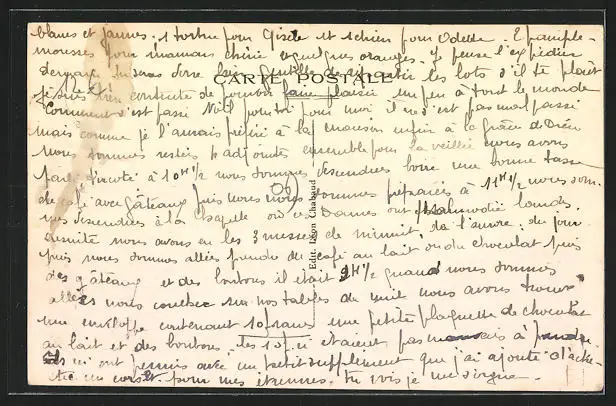 blancs et jaunes. 1 tortue pour Gisèle et 1 chien pour Odette. 2 pample-
mousses pour maman chérie et quelques oranges. Je pense l'expédier
CARTE POSTALE les lots s'il te plaît
je suis très contente de pouvoir faire plaisir un peu à tout le monde
Comment s'est passé Noël pour toi pour moi il ne s'est pas mal passé
mais comme je l'aurais préféré à la maison enfin à la grâce de Dieu
nous sommes restés ensemble pour la veillée nous avons
à 10H1/2 nous sommes descendues boire une bonne tasse
de café avec gâteaux puis nous nous sommes préparées à 11H1/2 nous som-
mes descendues à la chapelle où ces Dames ont psalmodié laudes
ensuite nous avons eu les 3 messes de minuit de l'aurore du jour
puis nous sommes allées prendre du café au lait ou du chocolat puis
des gâteaux et des bonbons il était 2H1/2 quand nous sommes
allées nous coucher sur nos tables de nuit nous avons trouvé
une enveloppe contenant 10 francs une petite plaquette de chocolat
au lait et des bonbons. les 10f. n'étaient pas mauvais à prendre
ils m'ont permis avec un petit supplément que j'ai ajouté d'ache-
ter un corset pour mes étrennes. tu vois je me soigne.
Edit. Léon Chabaud